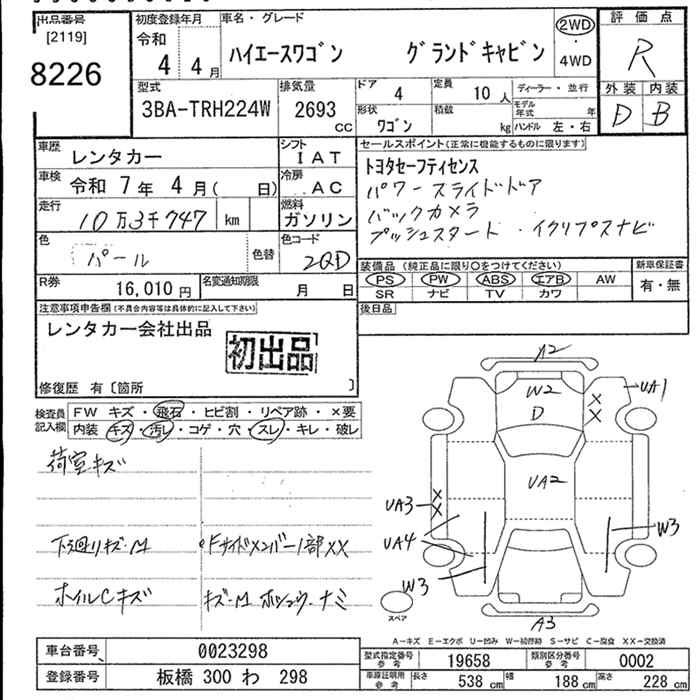 出品番号
[2119]
8226
初度登録年月
令和
4年 4月
車名・グレード
ハイエースワゴン グランドキャビン
2WD
・
4WD
評価点
R
外装 内装
D B
型式
3BA-TRH224W
排気量
2693
cc
ドア 4
定員 10人
形状 ワゴン
積載 kg
ディーラー・並行
モデル年式 年
ハンドル 左・右
車歴 レンタカー
シフト IAT
車検 令和 7年 4月( 日)
冷房 AC
走行 10万3千747 km
燃料 ガソリン
色 パール 色替
色コード 2QD
R券 16,010円
名変通知期限 月 日
セールスポイント(正常に機能するものに限ります)
トヨタセーフティセンス
パワースライドドア
バックカメラ
プッシュスタート ・イクリプスナビ
装備品(純正品に限り○をつけてください)
PS PW ABS エアB AW
SR ナビ TV カワ
新車保証書
有・無
後日品
注意事項申告欄(不具合内容等は具体的に記入して下さい)
レンタカー会社出品
初出品
修復歴 有〔箇所 〕
検査員記入欄
FW キズ・飛石・ヒビ割・リペア跡・×要
内装 キズ・汚レ・コゲ・穴・スレ・キレ・破レ
荷室キズ
下廻リキズ・M
FサイドメンバーI部XX
ホイルCキズ
キズ・M ホシュウ・ナミ
A2
W2
D
X
X
UA1
UA2
UA3
X
X
UA4
W3
W3
A3
スペア
A-キズ E-エクボ U-凹み W-補修跡 S-サビ C-腐食 XX-交換済
車台番号 0023298
登録番号 板橋 300 わ 298
型式指定番号 参考 19658
類別区分番号 参考 0002
車線証明用 参考
長さ 538cm 幅 188cm 高さ 228cm